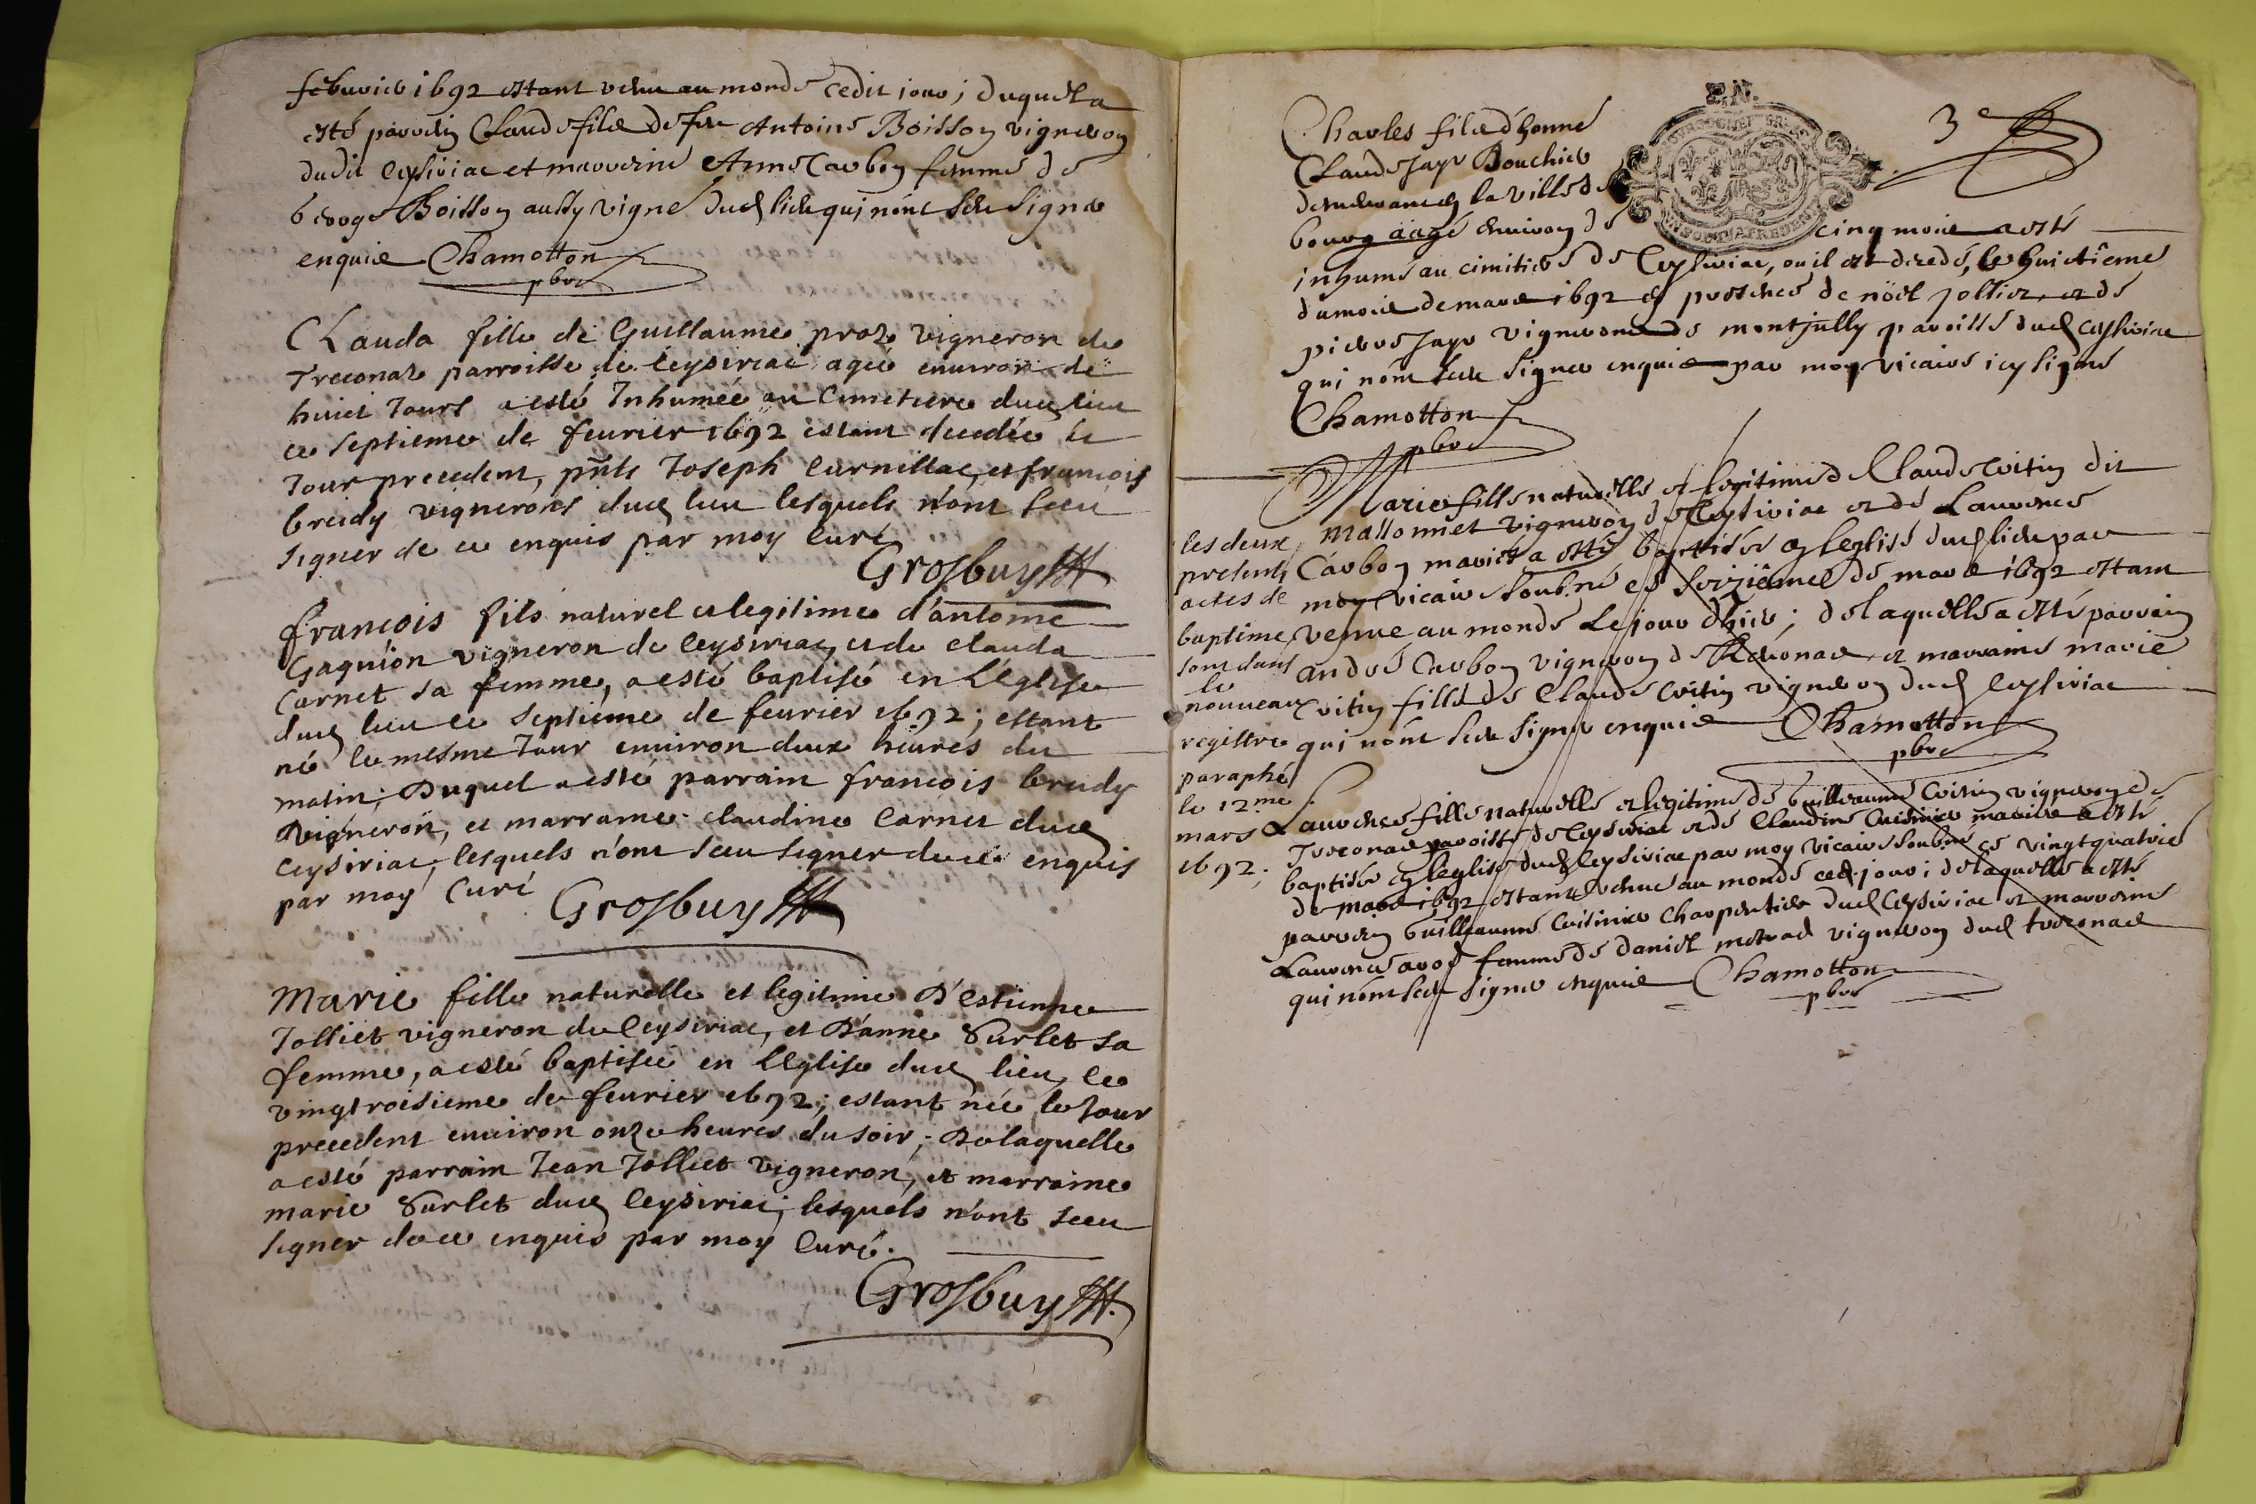 febvrier 1692 estant venu au monde cedit jour; duquel a
esté parrein Claude filz de feu Antoine Boisson vigneron
dudit Ceysiriac et marreine Anne Carbon femme de
George Boisson aussy vigne dud lieu qui nont sceu signer
enquis Chamotton
pbre
Clauda fille de Guillaume proz vigneron de
Treconaz parroisse de Ceysiriac agée environ de
huict Jours a esté Inhumée au Cimetiere dud lieu
ce septieme de feurier 1692 estant decedée le
Jour precedent, pnts Joseph Curnillac, et francois
bredy vignerons dud lieu lesquels n'ont sceu
signer de ce enquis par moy curé
Grosbuy
francois fils naturel et legitime d'antoine
Gagnion vigneron de Ceysiriac, et de clauda
Carnet sa femme, a esté baptisé en l'Eglise
dud lieu ce septiéme de feurier 1692; estant
né le mesme Jour environ deux heures du
matin; Duquel a esté parrain francois bredy
vigneron, et marraine claudine Carnet dud
Ceysiriac, lesquels n'ont sceu signer de ce enquis
par moy Curé
Grosbuy
Marie fille naturelle et legitime D'estienne
Jolliet vigneron de Ceysiriac, et D'anne Surlet sa
femme, a esté baptisée en l'Eglise dud lieu, ce
vingtroisieme de feurier 1692; estant née le Jour
precedent environ onze heures du soir; De laquelle
a esté parrain Jean Jolliet vigneron, et marraine
marie Surlet dud Ceysiriac; lesquels n'ont sceu
signer de ce enquis par moy Curé.
Grosbuy
3e
Charles filz d'honne
Claude Jayr Bouchier
demeurant en la ville de
bourg aagé environ de cinq mois a esté
inhumé au cimitiere de Ceysiriac, ou il est decedé, le huictième
du mois de mars 1692 en presence de nöel Jollier et de
pierre Jayr vignerons de montjully paroisse dud Ceysiriac
qui nont sceu signer enquis par moy vicaire icy signé
Chamotton
pbre
Marie fille naturelle et legitime de Claude Vitin dit
Mallonnet vigneron de Ceysiriac et de Laurence
Carbon mariés a esté baptisée en leglise dud lieu par
moy vicaire soubné ce seizième de mars 1692 estant
venue au monde le jour d'hier; de laquelle a esté parrain
andré Carbon vigneron de Treconas et marraine marie
Vitin fille de Claude Vitin vigneron dud Ceysiriac
qui nont sceu signer enquis Chamotton
pbre
les deux
presents
actes de
baptime
sont dans
le
nouveau
registre
paraphé
le 12me
mars
1692.
Laurence fille naturelle et legitime de Guilleaume Vitin vigneron de
Treconas paroisse de Ceysiriac et de Claudine Cuisinier mariés a esté
baptisée en leglise dud Ceysiriac par moy vicaire soubné ce vingtquatrie
de mars 1692 estant venue au monde ced. jour; de laquelle a esté
parrein Guilleaume Cuisinier charpentier dud Ceysiriac et marreine
Laurence femme de daniel vigneron dud treconas
qui nont sceu signer enquis Chamotton
pbre